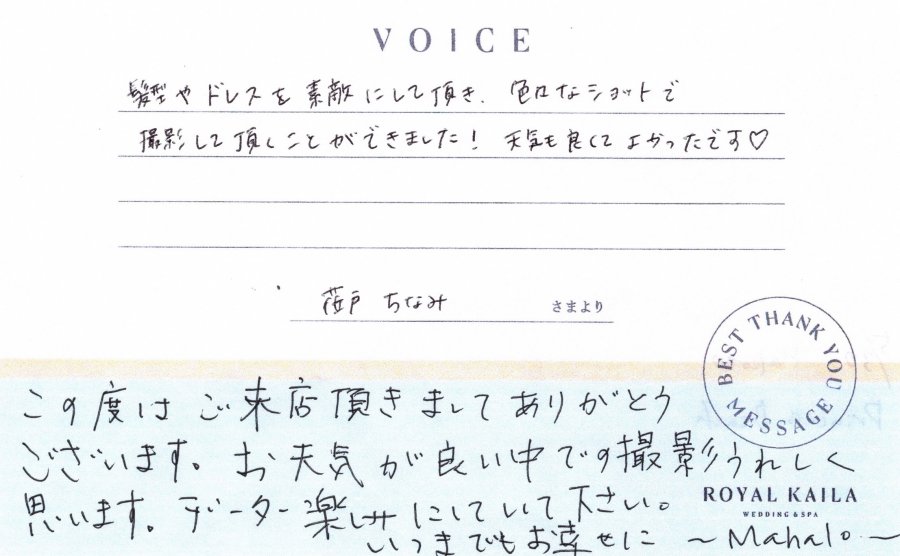 VOICE
髪型やドレスを素敵にして頂き、色んなショットで
撮影して頂くことができました! 天気も良くてよかったです♡
ちなみ さまより
BEST THANK YOU MESSAGE
この度はご来店頂きましてありがとう
ございます。お天気が良い中での撮影うれしく
思います。データー楽しみにしていて下さい。
いつまでもお幸せに ~Mahalo~
ROYAL KAILA
WEDDING & SPA